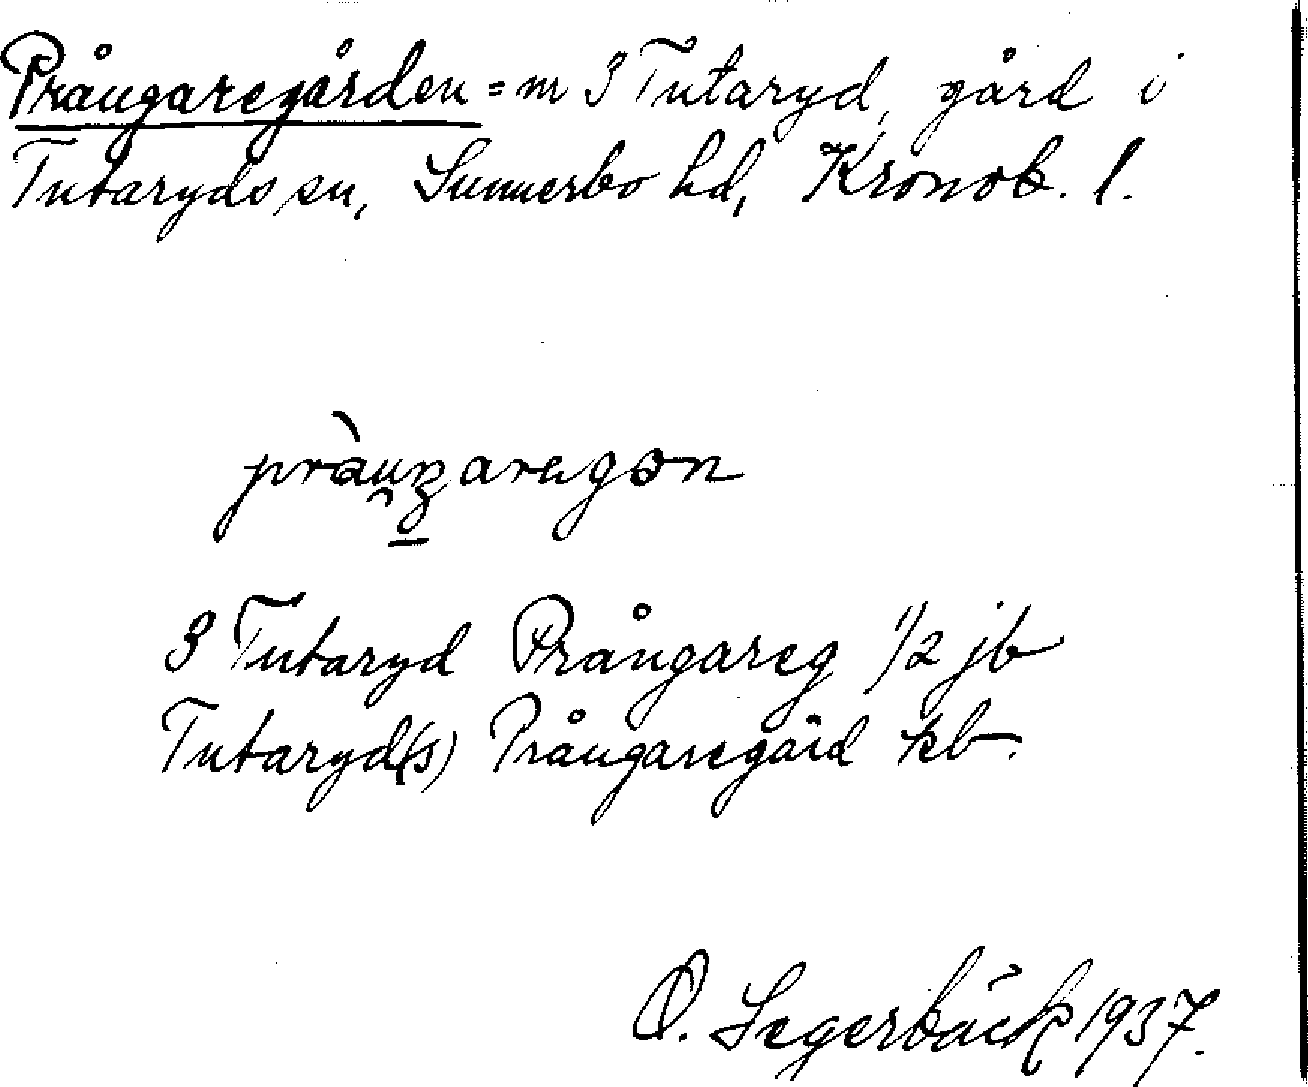 Prångaregården = nr 3 Tutaryd, gård i
Tutaryds sn, Sunnerbo hd, Kronob. l.
3 Tutaryd Prångareg 1/2 jb
Tutaryd(s) Prångaregård kb.
O. Segerbäck 1937.